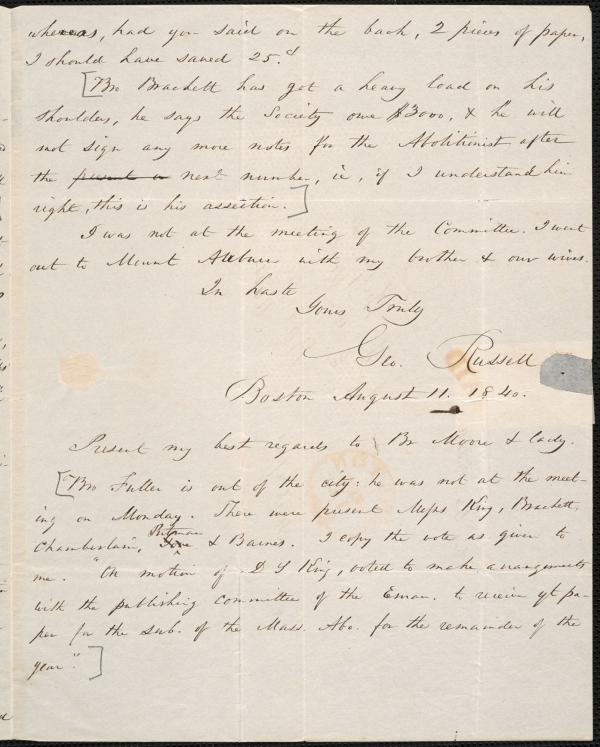 whereas, had you said on the back, 2 pieces of paper,
I should have saved 25.d
[Bro Brackett has got a heavy load on his
shoulders, he says the Society owe $3000, & he will
not sign any more notes for the Abolitionist after
the present n next number, ie, if I understand him
right, this is his assertion.]
I was not at the meeting of the Committee. I went
out to Mount Auburn with my brother & our wives.
In haste
Yours Truly
Geo. Russell
Boston August 11. 1840.
Present my best regards to Br Moore & lady.
[Bro Fuller is out of the city: he was not at the meet-
ing on Monday. There were present Messrs King, Brackett,
Pitman
Chamberlain, & Barnes. I copy the vote as given to
me. "On motion of D S King, voted to make arrangements
with the publishing committee of the Eman. to receive yt pa-
per for the sub. of the Mass. Abo. for the remainder of the
year."]